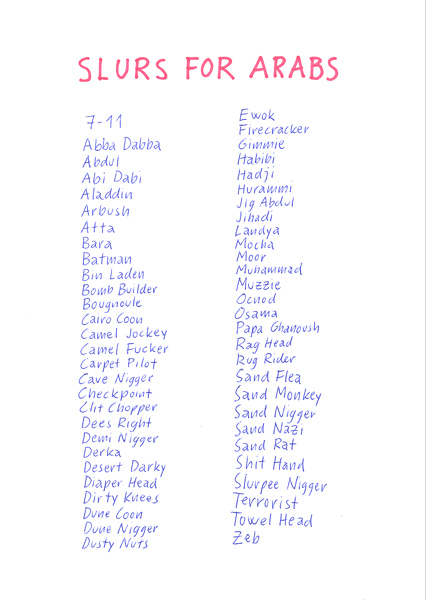 SLURS FOR ARABS
7-11
Abba Dabba
Abdul
Abi Dabi
Aladdin
Arbush
Atta
Bara
Batman
Bin Laden
Bomb Builder
Bougnoule
Cairo Coon
Camel Jockey
Camel Fucker
Carpet Pilot
Cave Nigger
Checkpoint
Clit Chopper
Dees Right
Demi Nigger
Derka
Desert Darky
Diaper Head
Dirty Knees
Dune Coon
Dune Nigger
Dusty Nuts
Ewok
Firecracker
Gimmie
Habibi
Hadji
Hurammi
Jig Abdul
Jihadi
Landya
Mocha
Moor
Muhammad
Muzzie
Ocnod
Osama
Papa Ghanoush
Rag Head
Rug Rider
Sand Flea
Sand Monkey
Sand Nigger
Sand Nazi
Sand Rat
Shit Hand
Slurpee Nigger
Terrorist
Towel Head
Zeb